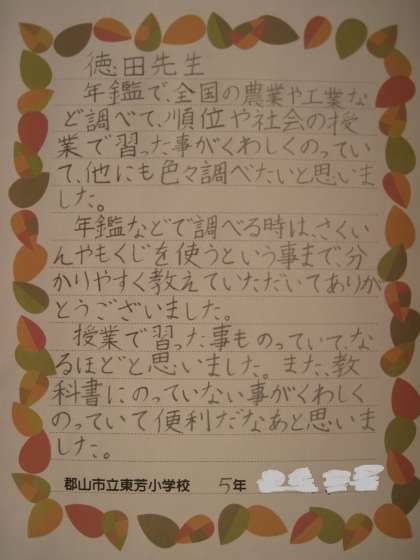 徳田先生
年鑑で、全国の農業や工業な
ど調べて、順位や社会の授
業で習った事がくわしくのってい
て、他にも色々調べたいと思いま
した。
年鑑などで調べる時は、さくい
んやもくじを使うという事まで、分
かりやすく教えていただいてありが
とうございました。
授業で習った事ものっていて、な
るほどと思いました。また、教
科書にのっていない事がくわしく
のっていて便利だなあと思いま
した。
郡山市立東芳小学校 5年